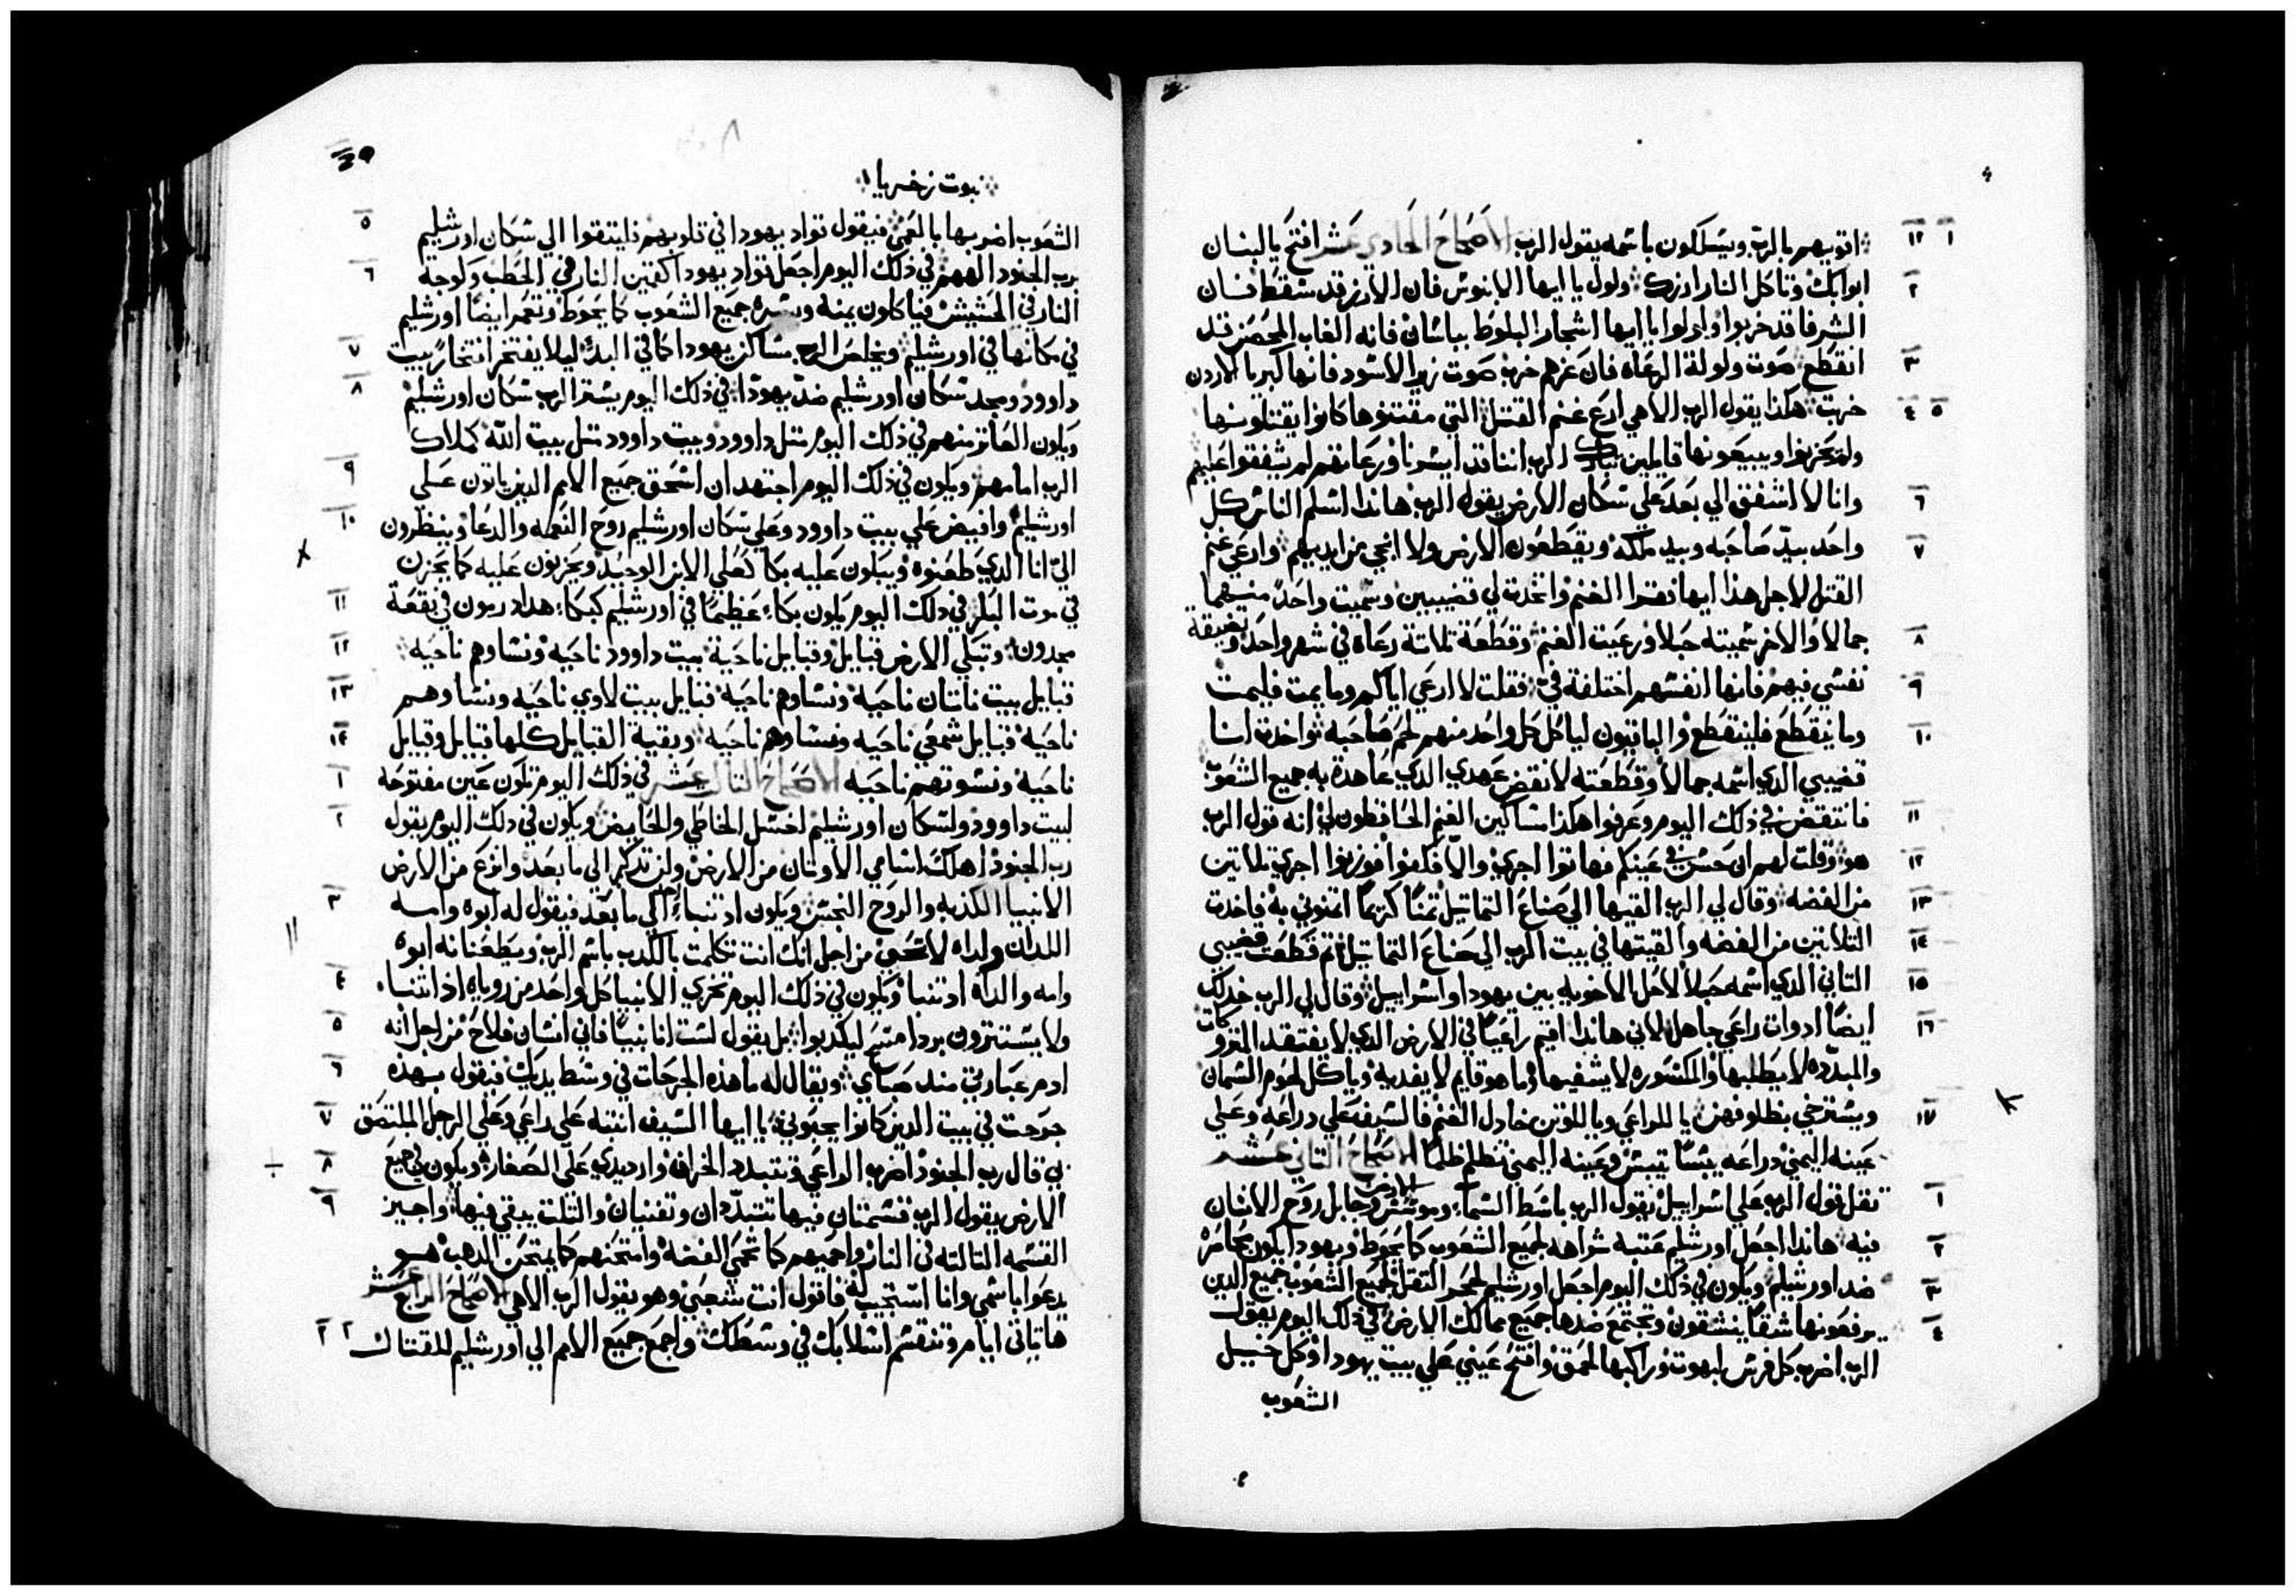 ١ ١٢ اقويهم بالرب ويسلكون باسمه يقول الرب الاصحاح الحادي عشر افتح يا لبنان
٢ ابوابك وتاكل النار ارزك ولول يا ايها الابنوس فان الارز قد سقط فان
الشرفا قد خربوا ولولوا يا ايها اشجار البلوط بباسان فانه الغاب المحصن قد
٣ انقطع صوت ولولة الرعاه فان عزهم خرب صوت زير الاسود فانها كبريا الاردن
٤ ٥ خربت هكذا يقول الرب الاهي ارع غنم القتل التي مقتنوها كانوا يقتلونها
ولم يحزنوا ويبيعونها قايلين تبارك الرب اننا قد ايسرنا ورعاتهم لم يشفقوا عليهم
٦ وانا لا اشفق الي بعد علي سكان الارض يقول الرب هاندا اسلم الناس كل
٧ واحد بيد صاحبه وبيد ملكه ويقطعون الارض ولا انجي من ايديهم وارعي غنم
القتل لاجل هذا ايها فقرا الغنم واتخدت لي قضيبين وسميت واحد منهما
٨ جمالا والاخر سميته حبلا ورعيت الغنم وقطعة تلاتة رعاة في شهر واحد وبضيقة
٩ نفسي فيهم فانها انفسهم اختلفة في فقلت لا ارعي اياكم وما يمت فليمت
١٠ وما ينقطع فلينقطع والباقيون لياكل كل واحد منهم لحم صاحبه تواخدت انا
قضيبي الذي اسمه جمالا وقطعته لانقض عهدي الدي عاهدة به جميع الشعوب
١١ فانتقض في ذلك اليوم وعرفوا هكذا مساكين الغنم الحافظون لي انه قول الرب
١٢ هو وقلت لهم ان حسن في عينكم فهاتوا اجرتي والا فكفوا فوزنوا اجرتي تلاتين
١٣ من الفضه وقال لي الرب القيها الي صناع التماتيل تمنًا كريمًا اتمنوني به فاخدت
١٤ التلاتين من الفضه والقيتها في بيت الرب الي صناع التماتيل تم قطعت قضيبي
١٥ التاني الدي اسمه حبلا لاحل الاخويه بين يهودا واسراييل وقال لي الرب خد لك
١٦ ايضًا ادوات راعي جاهل لاني هاندا اقيم راعيًا في الارض الدي لا يفتقد المتروكات
والمبدده لا يطلبها والمكسوره لا يشفيها وما هو قايم لا يغديه وياكل لحوم السمان
١٧ ويسترخي بظلوفهن يا للراعي ويا للوتن خادل الغنم فالسيف علي دراعه وعلي
عينه اليمني دراعه يبسًا تيبس وعينه اليمني تظلم ظلمًا الاصحاح التاني عشر
١ تقل قول الرب علي اسراييل يقول الرب باسط السما وموسس الارض وجابل روح الانسان
٢ فيه هاندا اجعل اورشليم عتبه سراهه لجميع الشعوب كما يحوط ويهودا يكون محاصر
٣ ضد اورشليم ويكون في ذلك اليوم اجعل اورشليم لحجر التقل لجميع الشعوب جميع الدين
٤ يرفعونها شقًا ينشقون وتجتمع ضدها جميع ممالك الارض في ذلك اليوم يقول
الرب اضرب كل فرس لبهوت وراكبها لحمق وافتح عيني علي بيت يهودا وكل خيل
الشعوب
نبوت زخريا
٥ الشعوب اضربها بالعمي فيقول قواد يهودا في قلوبهم فليتقوا الي سكان اورشليم
٦ برب الجنود الههم في ذلك اليوم اجعل قواد يهودا كقمين النار في الحطب ولوجة
النار في الحشيش فياكلون يمنه ويسره جميع الشعوب كما يحوط وتعمر ايضًا اورشليم
٧ في مكانها في اورشليم ويخلص الرب مساكن يهودا كما في البدء ليلا يفتخر افتخار بيت
٨ داوود ومجد سكان اورشليم ضد يهودا في ذلك اليوم يستر الرب سكان اورشليم
ويكون العاتر منهم في ذلك اليوم متل داوود وبيت داوود متل بيت الله كملاك
٩ الرب امامهم ويكون في ذلك اليوم اجتهد ان اسحق جميع الامم الدين ياتون علي
١٠ اورشليم وافيض علي بيت داوود وعلي سكان اورشليم روح النعمه والدعا وينظرون
الي انا الدي طعنوه ويبكون عليه بكا كعلي الابن الوحيد ويحزنون عليه كما يحزن
١١ في موت البكر في ذلك اليوم يكون بكاء عظيمًا في اورشليم كبكاء هدادرمون في بقعة
١٢ مجدون وتبكي الارض قبايل وقبايل ناحية بيت داوود ناحيه ونساوهم ناحيه
١٣ قبايل بيت ناتان ناحيه ونساوهم ناحية قبايل بيت لاوي ناحيه ونساوهم
١٤ ناحية قبايل شمعي ناحيه ونساوهم ناحيه وبقية القبايل كلها قبايل وقبايل
١ ناحية ونسوتهم ناحيه الاصحاح التالت عشر في ذلك اليوم تكون عين مفتوحه
٢ لبيت داوود ولسكان اورشليم لغسل الخاطي والحايض ويكون في دلك اليوم يقول
رب الجنود اهلك اسامي الاوتان من الارض ولن تدكر الي ما بعد وانزع من الارض
٣ الانبيا الكذبه والروح النجس ويكون اد تنباء احد الي ما بعد فيقول له ابوه وامه
اللدان ولداه لا تحي من اجل انك انت تكلمت بالكدب باسم الرب ويطعنانه ابوه
٤ وامه والداه اد تنبا ويكون في ذلك اليوم تخزي الانبيا كل واحد من روياه ادا تنباء
٥ ولا يستترون بردا مسح ليكدبوا بل يقول لست انا نبيًا فاني انسان فلاح من اجل انه
٦ ادم عبارتي مند صباي ويقال له ما هذه الجرحات في وسط يديك فيقول بهذه
٧ جرحت في بيت الدين كانوا يحبوني يا ايها السيف انتبه علي راعي وعلي الرجل الملتصق
٨ بي قال رب الجنود اضرب الراعي فتتبدد الخراف وارد يدي علي الصغار ويكون في جميع
٩ الارض يقول الرب قسمتان فيها تتبددان وتفنيان والتلت يبقي فيها واجيز
القسمه التالته في النار واحميهم كما تحمي الفضه وامتحنهم كما يمتحن الدهب هو
يدعوا باسمي وانا استجيب له فاقول انت شعبي وهو يقول الرب الاهي الاصحاح الرابع عشر
١ ٢ ها تاتي ايام وتنقسم اسلابك في وسطك واجمع جميع الامم الي اورشليم للقتال